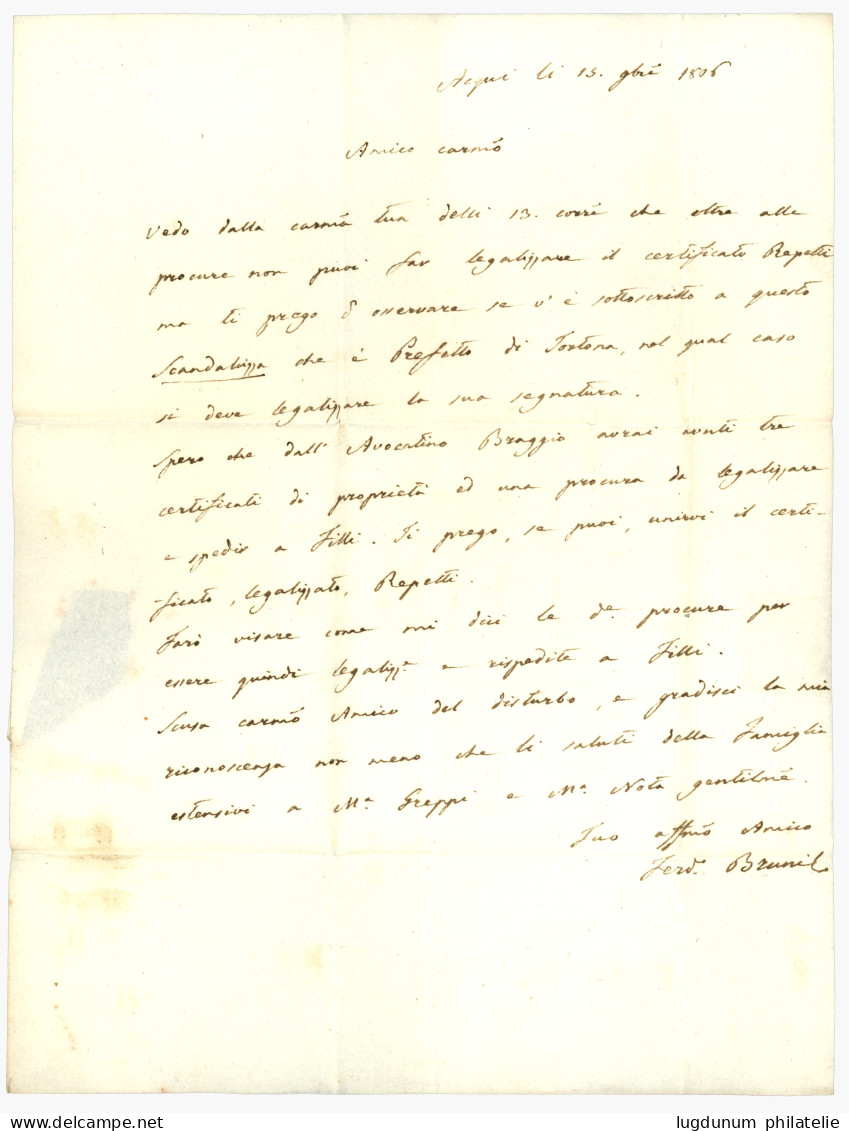 Acqui li 15. 9bre 1806
Amico carmo
Vedo dalla carma tua delli 13. corre che oltre alle
procure non puoi far legalizzare il certificato Repetti
ma ti prego d' osservare se v' è sottoscritto a questo
Scandaluzza che è Prefetto di Tortona, nel qual caso
si deve legalizzare la sua segnatura.
Spero che dall' Avocatino Braggio avrai avuti tre
certificati di proprietà ed una procura da legalizzare
e spedir a Filli. Ti prego, se puoi, unirvi il certi-
ficato, legalizzato, Repetti.
Farò visare come mi dici le de procure per
essere quindi legalizze e rispedite a Filli.
Scusa carmo Amico del disturbo, e gradisci la mia
riconoscenza non meno che li saluti della Famiglia
estensivi a Ma Greppi e Ma Nota gentilme.
Tuo affmo Amico
Ferdo Brunil
lugdunum philatelie